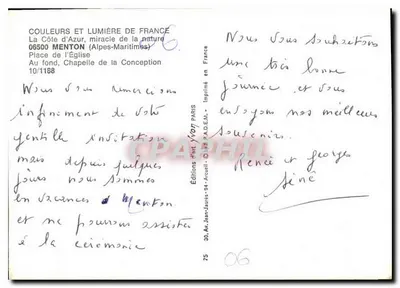 COULEURS ET LUMIÈRE DE FRANCE
La Côte d'Azur, miracle de la nature
06500 MENTON (Alpes-Maritimes)
Place de l'Église
Au fond, Chapelle de la Conception
10/1188
06
Nous vous remercions
infiniment de votre
gentille invitation
mais depuis quelques
jours nous sommes
en vacances à Menton
et ne pourrons assister
à la cérémonie
Editions d'art YVON PARIS
75
Imprimé en France
Nous vous souhaitons
une très bonne
journée et vous
envoyons nos meilleurs
souvenirs.
Renée et georges
06